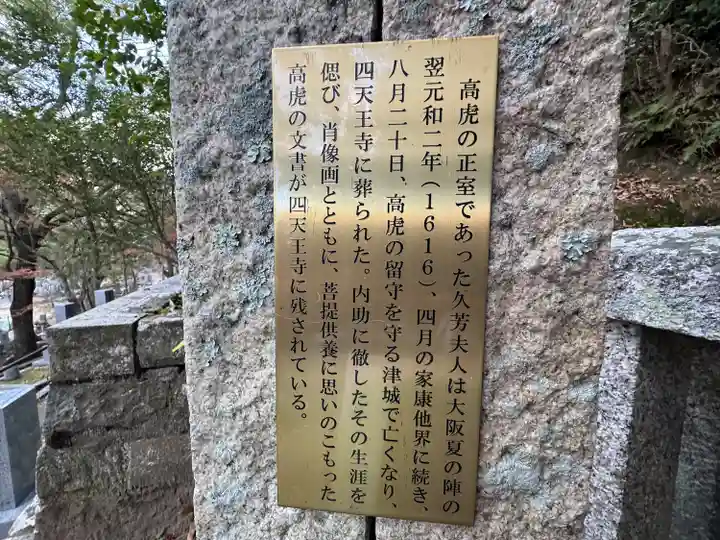 高虎の正室であった久芳夫人は大阪夏の陣の
翌元和二年（1616）、四月の家康他界に続き、
八月二十日、高虎の留守を守る津城で亡くなり、
四天王寺に葬られた。内助に徹したその生涯を
偲び、肖像画とともに、菩提供養に思いのこもった
高虎の文書が四天王寺に残されている。